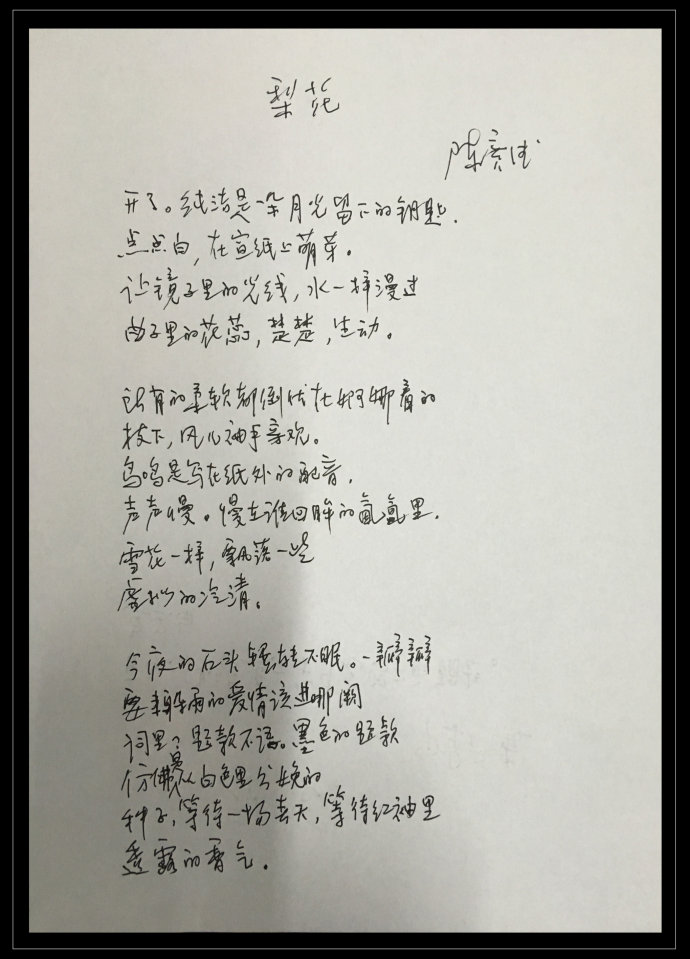 梨花
陈
开了。纯洁是一朵月光留下的钥匙，
点点白，在宣纸上萌芽。
让镜子里的光线，水一样漫过
曲子里的花蕊，楚楚，生动。
所有的柔软都倒伏在婀娜着的
枝下，风儿袖手旁观。
鸟鸣是写在纸外的配音，
声声慢。慢在谁回眸的氤氲里，
雪花一样，飘落一些
虚拟的冷清。
今夜的石头辗转不眠。一瓣瓣
要躲雨的爱情该进哪阕
词里？题款不语。墨色的题款
仿佛是从白色里分娩的
种子，等待一场春天，等待红袖里
透露的香气。